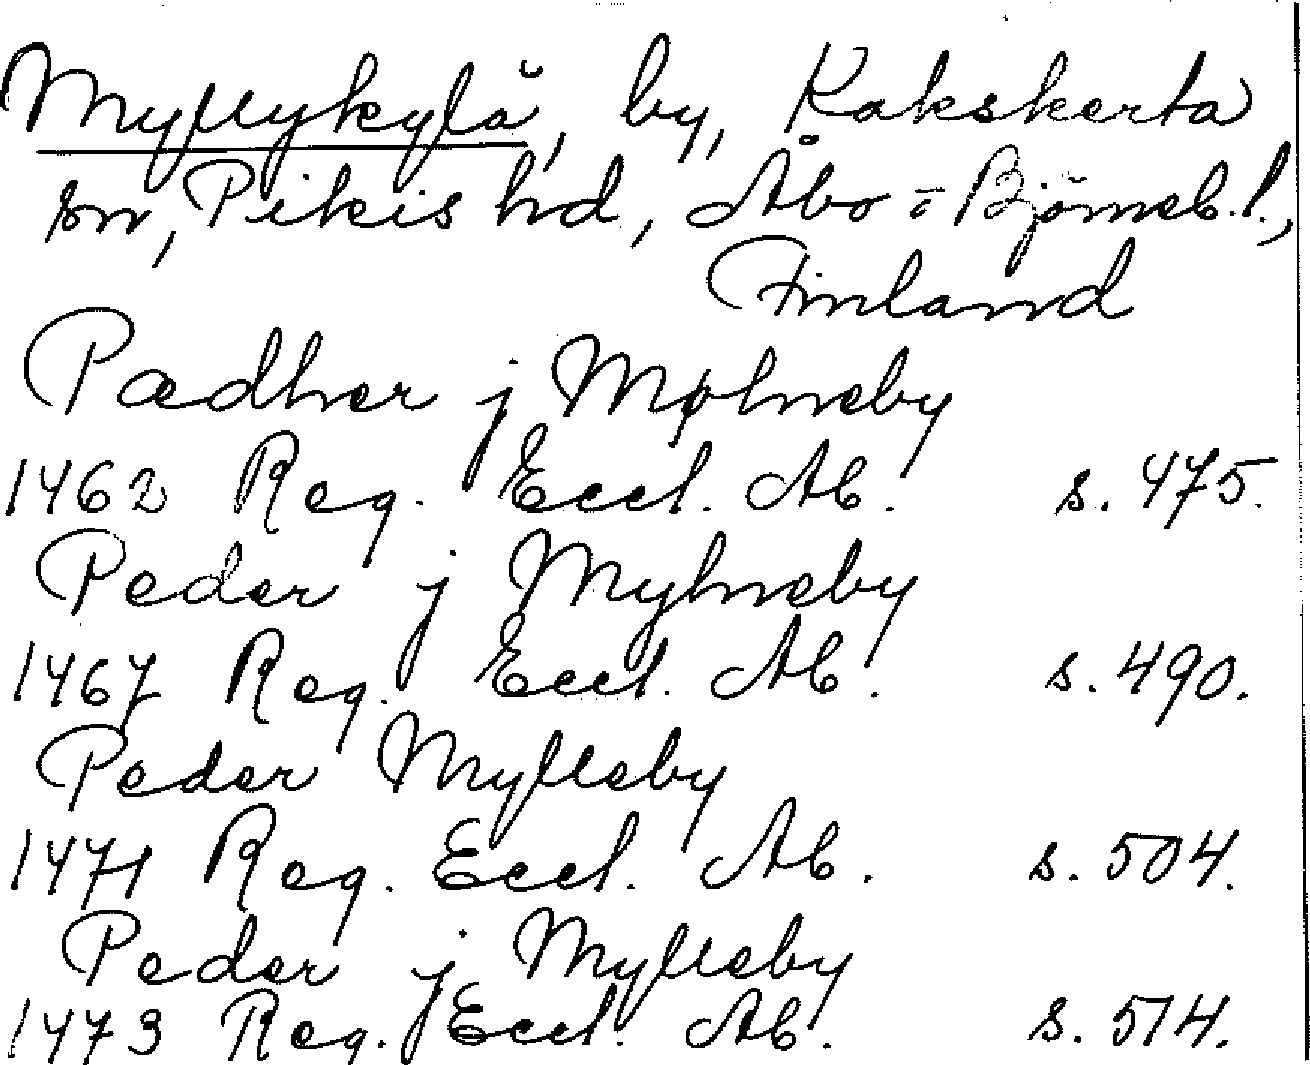 Myllykylä, by, Kakskerta
sn, Pikis hd, Åbo = Björneb. l.,
Finland
Pædher j Mølneby
1462 Reg. Eccl. Ab. s. 475.
Peder j Mylneby
1467 Reg. Eccl. Ab. s. 490.
Peder Mylleby
1471 Reg. Eccl. Ab. s. 504.
Peder j Mylleby
1473 Reg. Eccl. Ab. s. 514.